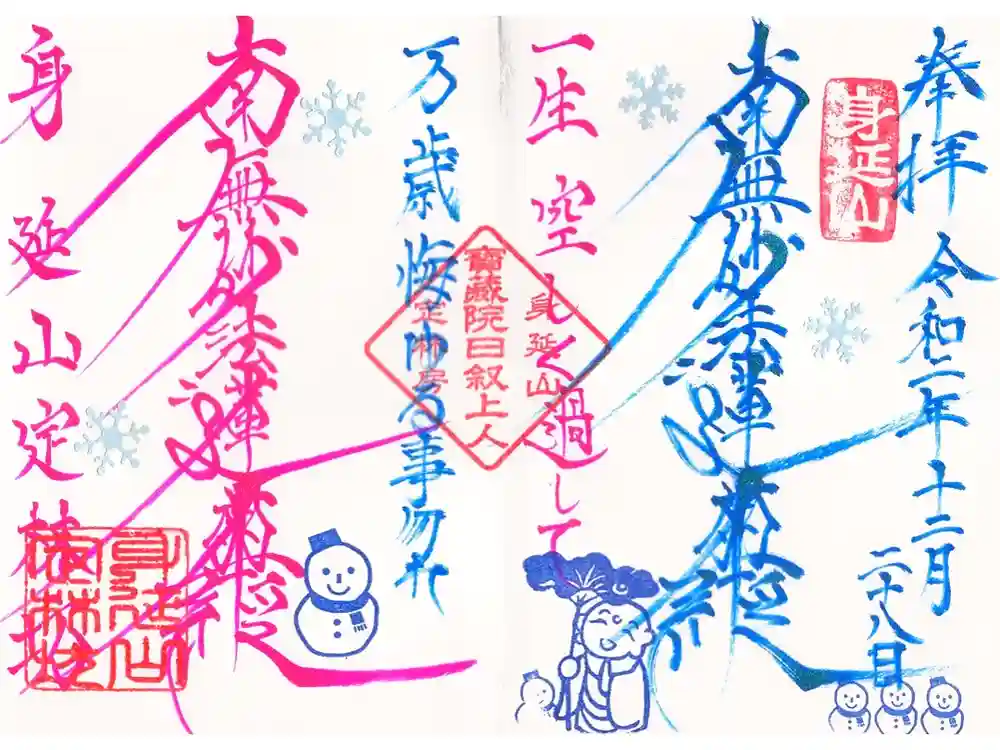 奉拝 令和二年 十二月
二十八日
身延山
南無妙法蓮華経
一生空しく過して
身延山
寶蔵院日叙上人
定林房
万歳悔ゆる事勿れ
南無妙法蓮華経
身延山定林坊
身延山